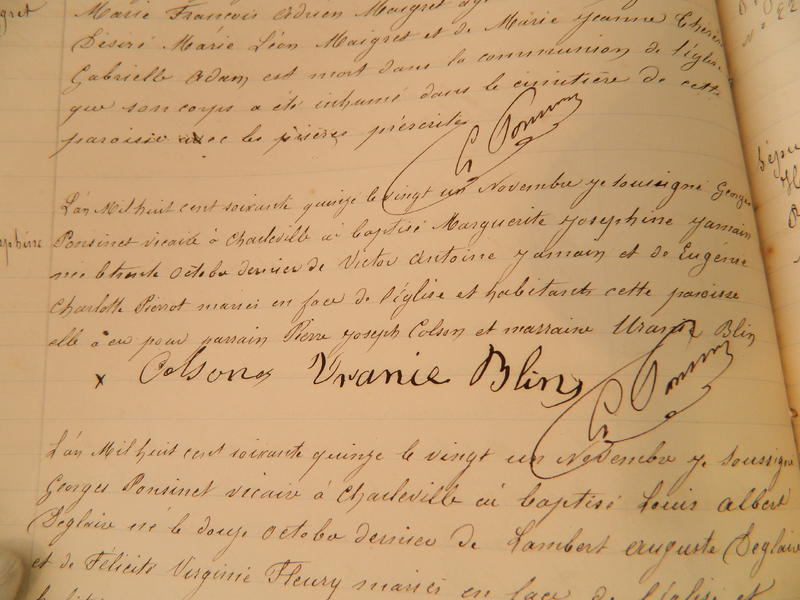 Marie François Adrien Maigret
Désiré Marie Léon Maigret et de Marie Jeanne
Gabrielle Adam est mort dans la communion de l'église
que son corps a été inhumé dans le cimitière de cette
paroisse avec les prières préscrites
G Ponsinet
L'an Mil huit cent soixante quinze le vingt un Novembre je soussigné Georges
Ponsinet vicaire à Charleville ai baptisé Marguerite Josephine Jamain
née le trente Octobre dernier de Victor Antoine Jamain et de Eugénie
Charlotte Pierrot mariés en face de l'église et habitants cette paroisse
elle a eu pour parrain Pierre Joseph Colson et marraine Uranie Blin
x Colson Uranie Blin G Ponsinet
L'an Mil huit cent soixante quinze le vingt un Novembre je soussigné
Georges Ponsinet vicaire à Charleville ai baptisé Louis Albert
Deglaire né le douze Octobre dernier de Lambert Auguste Deglaire
et de Félicité Virginie Fleury mariés en face de l'église et